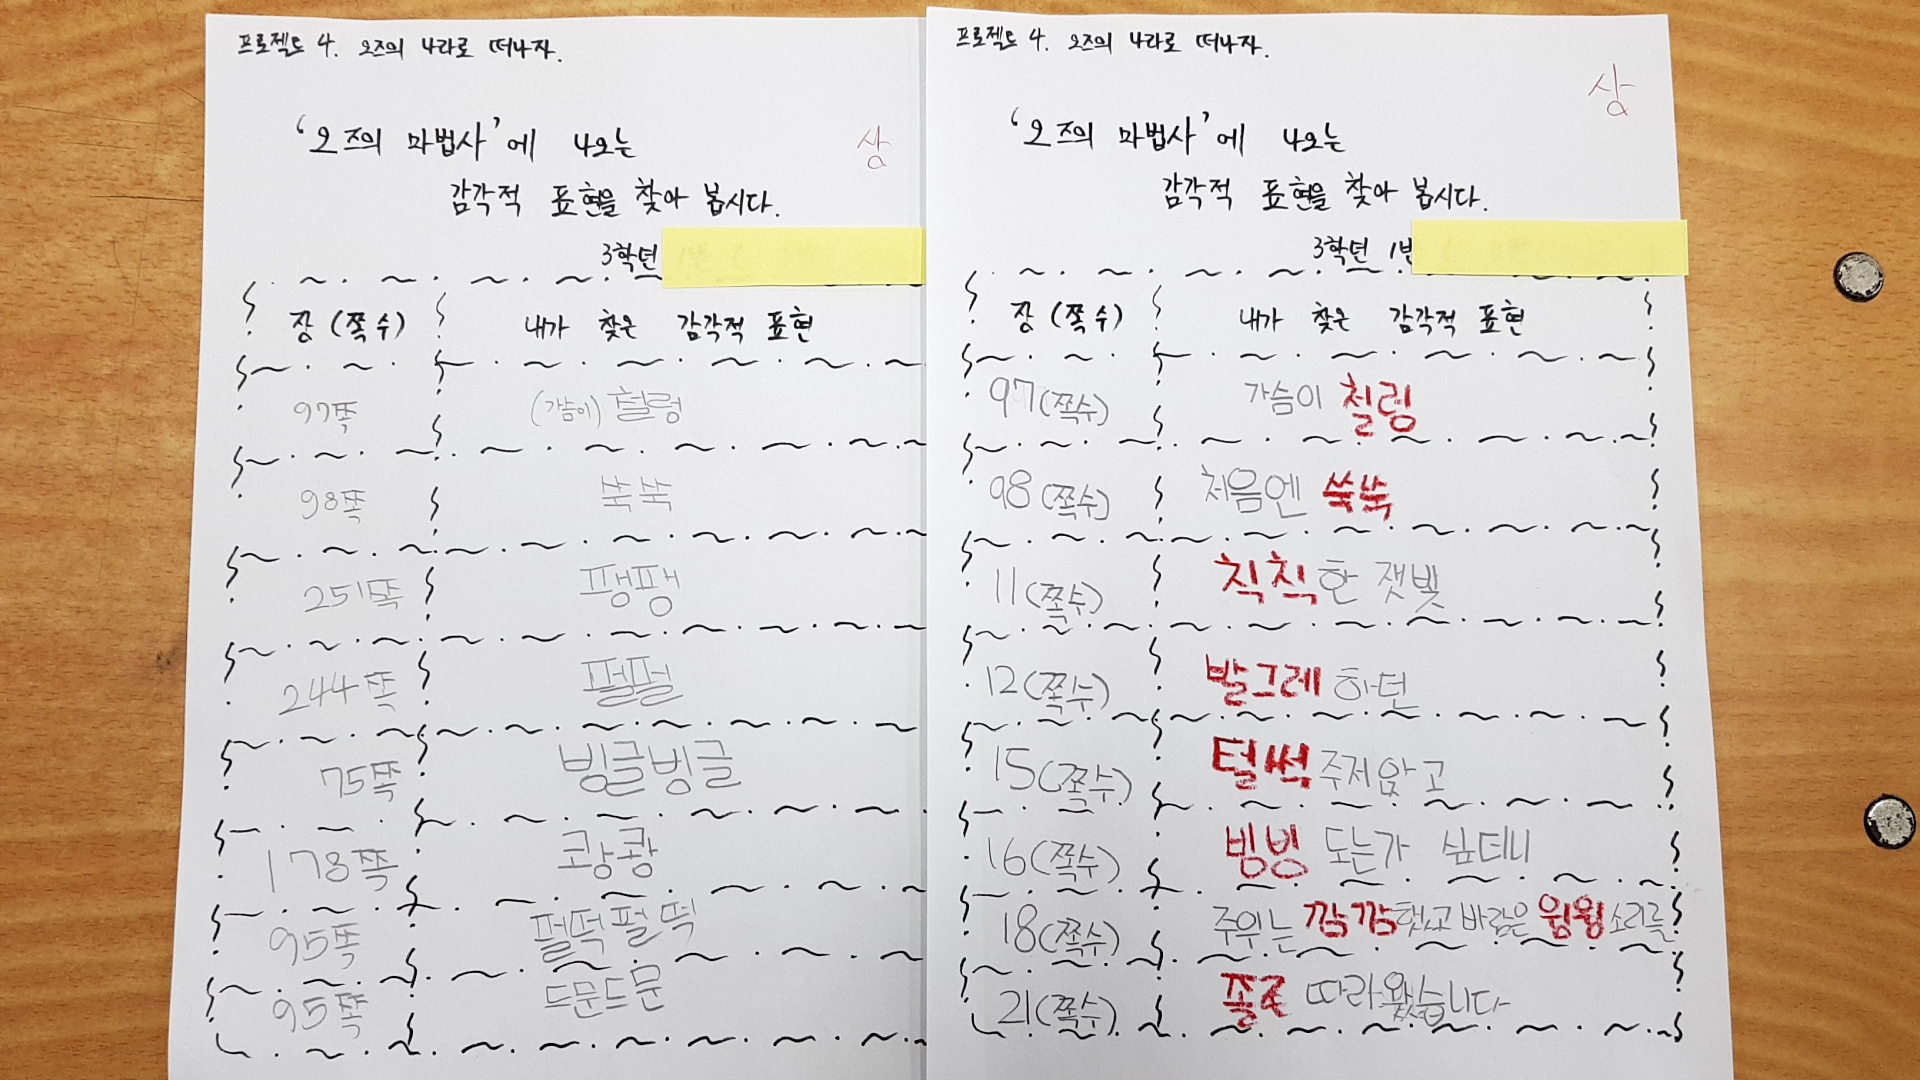 프로젝트 4. 오즈의 나라로 떠나자.
'오즈의 마법사'에 나오는
상
감각적 표현을 찾아 봅시다.
3학년
장(쪽수) 내가 찾은 감각적 표현
97쪽 (가슴이) 철렁
98쪽 쑥쑥
251쪽 팽팽
244쪽 펄펄
75쪽 빙글빙글
178쪽 쾅쾅
95쪽 펄떡펄떡
95쪽 드문드문
프로젝트 4. 오즈의 나라로 떠나자.
상
'오즈의 마법사'에 나오는
감각적 표현을 찾아 봅시다.
3학년 1반
장(쪽수) 내가 찾은 감각적 표현
97(쪽수) 가슴이 철렁
98(쪽수) 처음엔 쑥쑥
11(쪽수) 칙칙한 잿빛
12(쪽수) 발그레 하던
15(쪽수) 털썩 주저앉고
16(쪽수) 빙빙 도는가 싶더니
18(쪽수) 주위는 깜깜했고 바람은 윙윙 소리를
21(쪽수) 쫄로 따라왔습니다